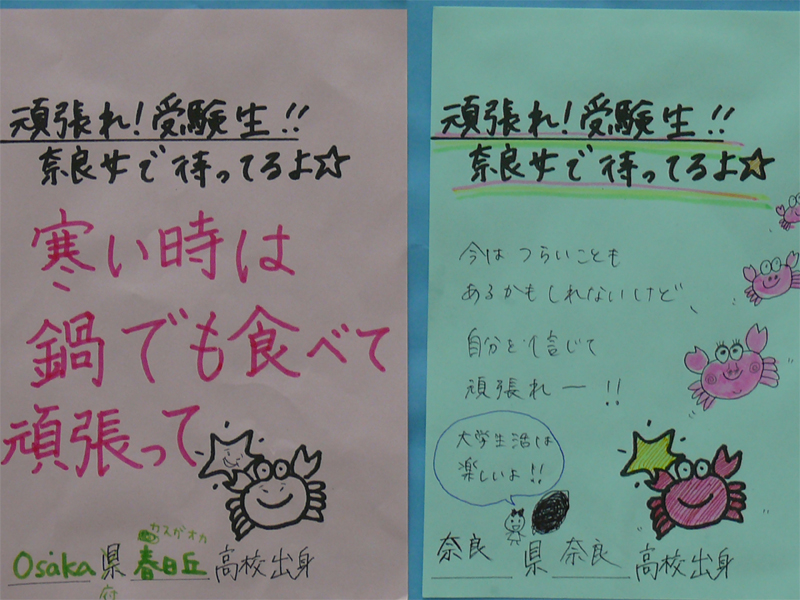 頑張れ!受験生!!
奈良女で待ってるよ☆
寒い時は
鍋でも食べて
頑張って
カスガオカ
Osaka県春日丘高校出身
府
頑張れ!受験生!!
奈良女で待ってるよ☆
今はつらいことも
あるかもしれないけど、
自分を信じて
頑張れー!!
大学生活は
楽しいよ!!
奈良県奈良高校出身